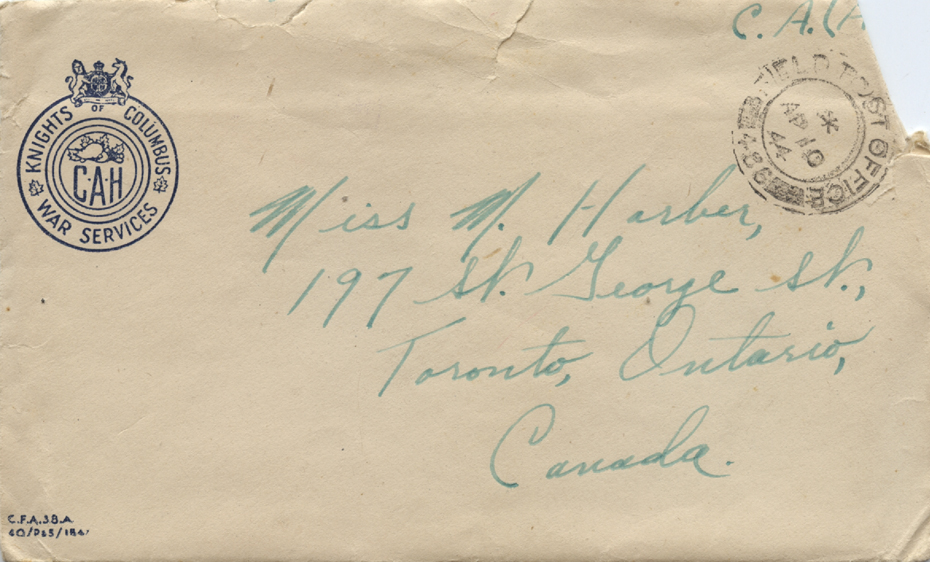 C. A. (A
KNIGHTS OF COLUMBUS
C·A·H
WAR SERVICES
FIELD POST OFFICE
*
AP 10
44
Miss M. Harber,
197 St. George St.,
Toronto, Ontario,
Canada.
C.F.A.38.A